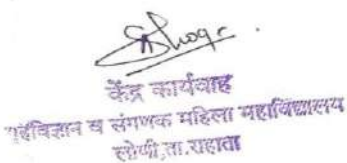 केंद्र कार्यवाह
गृहविज्ञान व संगणक महिला महाविद्यालय
लोणी,ता.राहाता